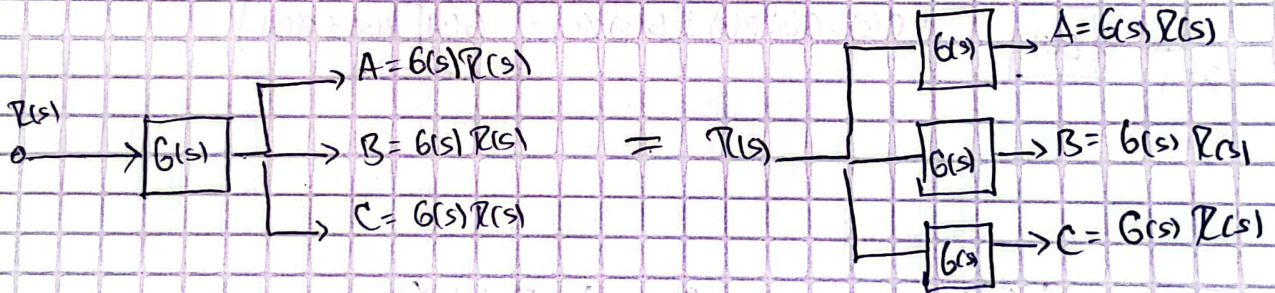 R(s)
G(s)
A = G(s) R(s)
B = G(s) R(s)
C = G(s) R(s)
=
R(s)
G(s)
A = G(s) R(s)
G(s)
B = G(s) R(s)
G(s)
C = G(s) R(s)